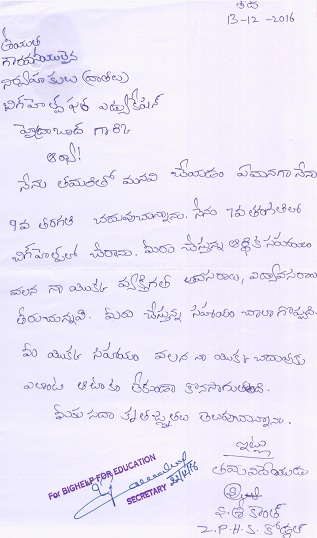 తేది
13-12-2016
శ్రీయుత
గౌరవనీయులైన
నిర్వాహకులు (దాతలు)
బిగ్‌హెల్ప్ ఫర్ ఎడ్యుకేషన్
హైద్రాబాద్ గారికి
ఆర్యా!
నేను తమరితో మనవి చేయడం ఏమనగా నేను
9వ తరగతి చదువుచున్నాను. నేను 7వ తరగతిలో
బిగ్‌హెల్ప్‌లో చేరాను. మీరు చేస్తున్న ఆర్థిక సహాయం
వలన నా యొక్క వ్యక్తిగత అవసరాలు, విద్యావసరాలు
తీరుచున్నవి. మీరు చేస్తున్న సహాయం చాలా గొప్పది.
మీ యొక్క సహాయం వలన నా యొక్క చదువుకు
ఎలాంటి ఆటంకం లేకుండా కొనసాగుతుంది.
మీకు సదా కృతజ్ఞతలు తెలుపుచున్నాను.
ఇట్లు
తమ విదేయుడు
శ్రీకాంత్
Z.P.H.S.
For BIGHELP FOR EDUCATION
SECRETARY 22/12/16